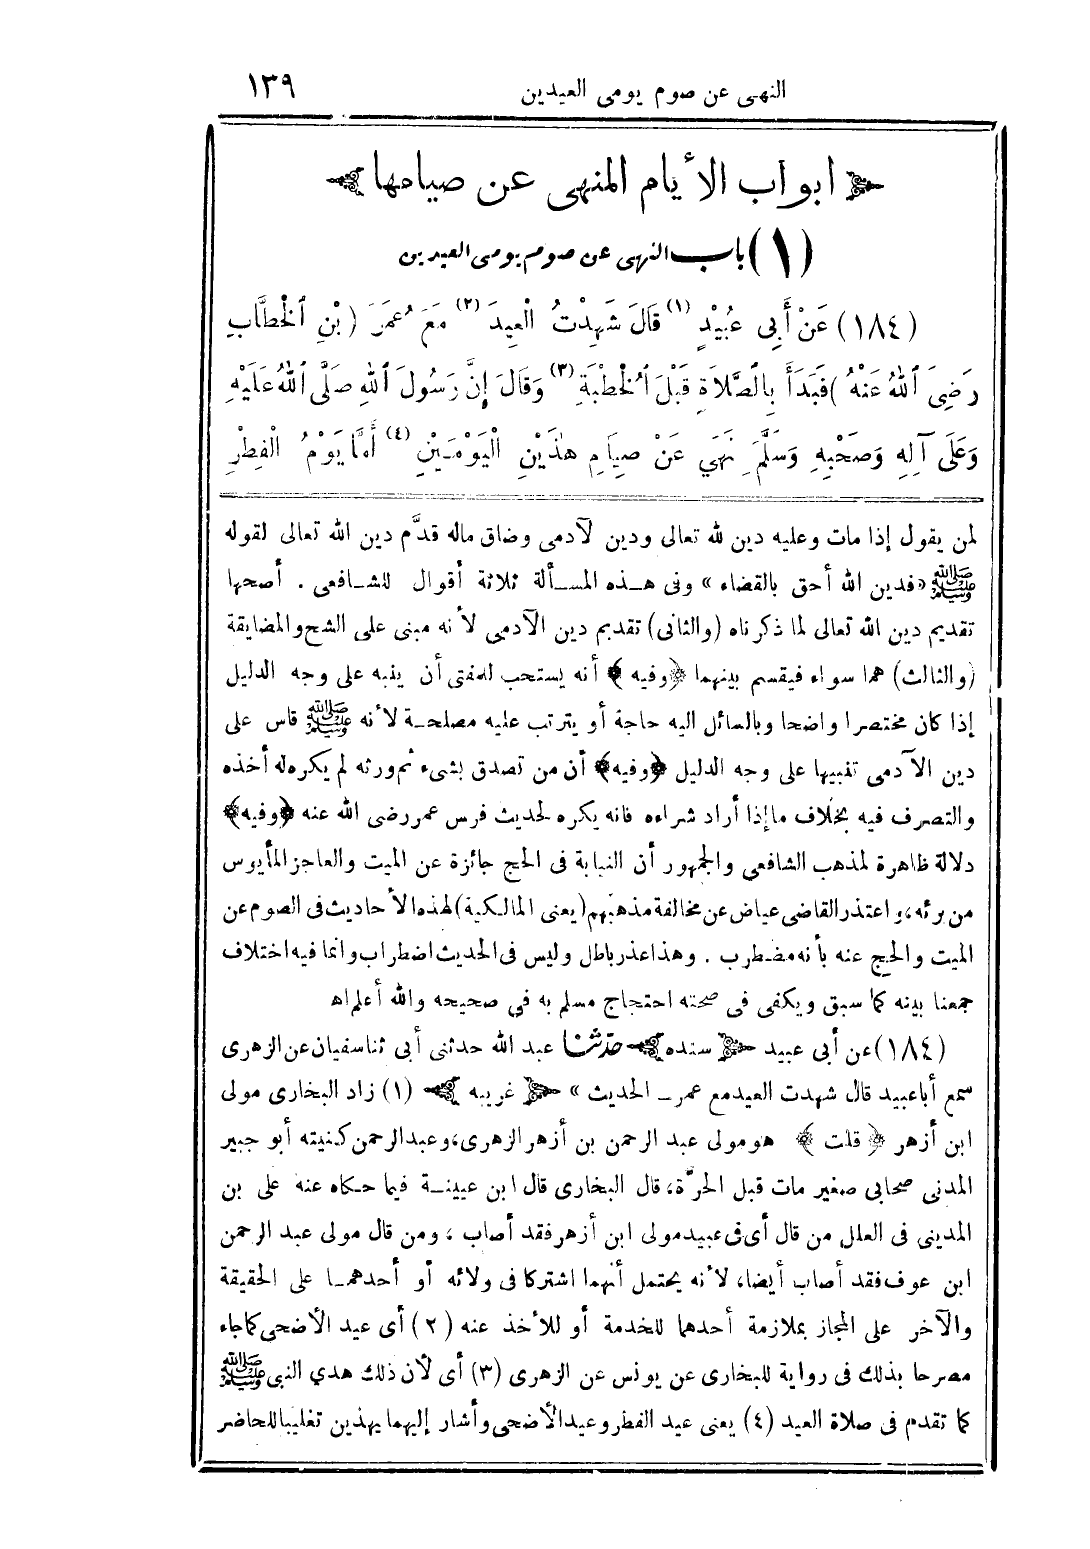 النهى عن صوم يومى العيدين ١٣٩
ابواب الأيام المنهى عن صيامها
(١) باب النهى عن صوم يومى العيدين
(١٨٤) عَنْ أَبِى عُبَيْدٍ (١) قَالَ شَهِدْتُ الْعِيدَ (٢) مَعَ عُمَرَ (بْنِ الْخَطَّابِ
رَضِىَ اللهُ عَنْهُ) فَبَدَأَ بِالصَّلاَةِ قَبْلَ الْخُطْبَةِ (٣) وَقَالَ إِنَّ رَسُولَ اللهِ صَلَّى اللهُ عَلَيْهِ
وَعَلَى آلِهِ وَصَحْبِهِ وَسَلَّمَ نَهَى عَنْ صِيَامِ هٰذَيْنِ الْيَوْمَيْنِ (٤) أَمَّا يَوْمُ الْفِطْرِ
لمن يقول إذا مات وعليه دين لله تعالى ودين لآدمى وضاق ماله قدَّم دين الله تعالى لقوله
ﷺ «فدين الله أحق بالقضاء» وفى هـذه المسـألة ثلاثة أقوال للشافعى . أصحها
تقديم دين الله تعالى لما ذكرناه (والثانى) تقديم دين الآدمى لأنه مبنى على الشح والمضايقة
(والثالث) هما سواء فيقسم بينهما ﴿وفيه﴾ أنه يستحب للمفتى أن ينبه على وجه الدليل
إذا كان مختصرا واضحا وبالسائل اليه حاجة أو يترتب عليه مصلحـة لأنه ﷺ قاس على
دين الآدمى تنبيها على وجه الدليل ﴿وفيه﴾ أن من تصدق بشىء ثم ورثه لم يكره له أخذه
والتصرف فيه بخلاف ما إذا أراد شراءه فانه يكره لحديث فرس عمر رضى الله عنه ﴿وفيه﴾
دلالة ظاهرة لمذهب الشافعى والجمهور أن النيابة فى الحج جائزة عن الميت والعاجز المأيوس
من برئه، واعتذر القاضى عياض عن مخالفة مذهبهم (يعنى المالكية) لهذه الأحاديث فى الصوم عن
الميت والحج عنه بأنه مضطرب . وهذا عذر باطل وليس فى الحديث اضطراب وانما فيه اختلاف
جمعنا بينه كما سبق ويكفى فى صحته احتجاج مسلم به في صحيحه والله أعلم اه
(١٨٤) عن أبى عبيد ﴿سنده﴾ حدّثنا عبد الله حدثنى أبى ثنا سفيان عن الزهرى
سمع أبا عبيد قال شهدت العيد مع عمر ـ الحديث » ﴿غريبه﴾ (١) زاد البخارى مولى
ابن أزهر ﴿قلت﴾ هو مولى عبد الرحمن بن أزهر الزهرى، وعبد الرحمن كنيته أبو جبير
المدنى صحابى صغير مات قبل الحرَّة، قال البخارى قال ابن عيينـة فيما حكاه عنه على بن
المدينى فى العلل من قال أى فى عبيد مولى ابن أزهر فقد أصاب ، ومن قال مولى عبد الرحمن
ابن عوف فقد أصاب أيضا، لأنه يحتمل أنهما اشتركا فى ولائه أو أحدهمـا على الحقيقة
والآخر على المجاز بملازمة أحدهما للخدمة أو للأخذ عنه (٢) أى عيد الأضحى كما جاء
مصرحا بذلك فى رواية للبخارى عن يونس عن الزهرى (٣) أى لأن ذلك هدي النبى ﷺ
كما تقدم فى صلاة العيد (٤) يعنى عيد الفطر وعيد الأضحى وأشار إليهما بهذين تغليبا للحاضر